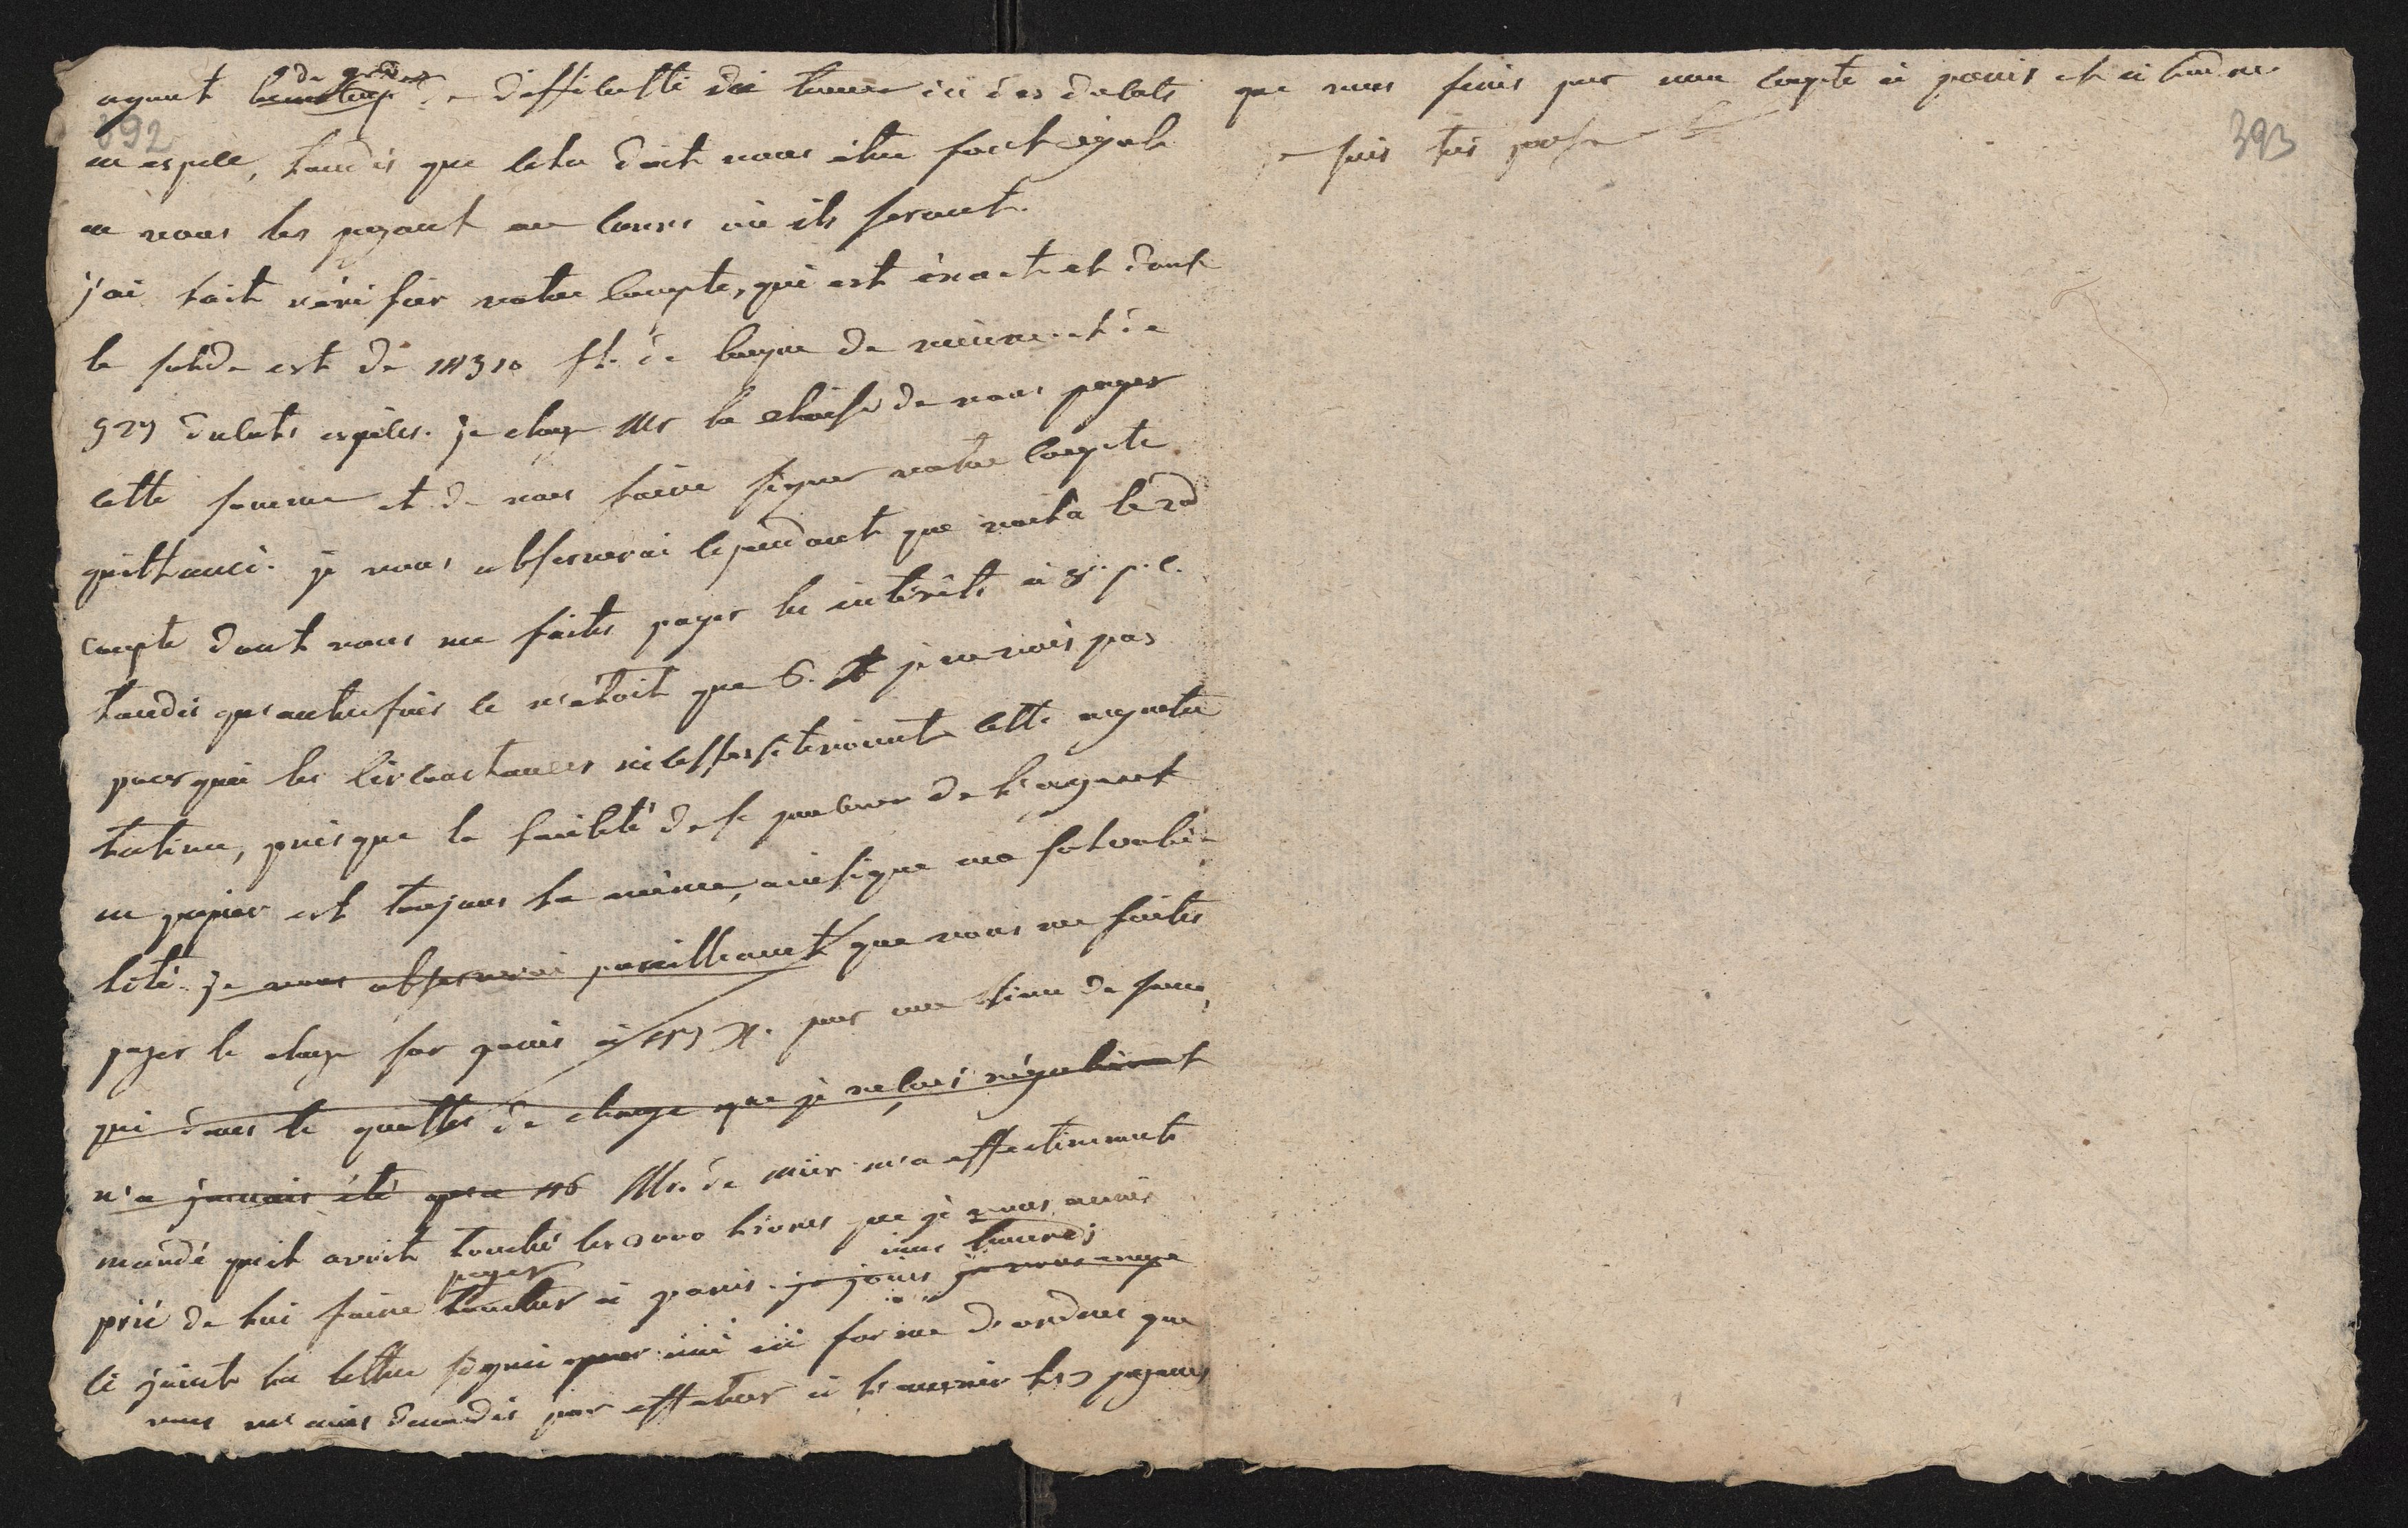 ayant beaucoup de grdes difficulté de trouver ici des ducats
392
en espece, tandis que cela doit vous être fort égale
en vous les payant au cours où ils seront.
j'ai fait vérifier votre compte, qui est éxact et dont
le solde est de 11310 fl. de banque de vienne et de
527 ducats espèces. je charge Mr la de vous payer
cette somme et de vous faire signer votre compte
quittancé. je vous observerai cependant que voila le 2d
compte dont vous me faites payer les intérêts à 8. p. c.
tandis qu'autrefois ce n'étoit que 6. je ne vois pas
pourquoi les circonstances nécessiteroient cette augmen
tation, puisque la facilité de se procurer de l'argent
en papier est toujours la même, ainsi que ma solvabi
lité. je vous observerai pareillement que vous me faites
payer le change sur paris à 117 x. pour une somme
qui dans le quartier de change que je reçois régulièrement
n'a jamais été qu'a 116 Mr. de mier m'a effectivement
mandé qu'il avoit touché les livres que je vous avois
prié de lui faire toucher payer à paris. je joins je vous envoye vous trouverés
ci joint la lettre signée par moi en forme d'ordres que
vous m'avés demandés pour effectuer à l'avenir les payemens
que vous ferés pour mon compte à paris et à londres
393
je suis très parf